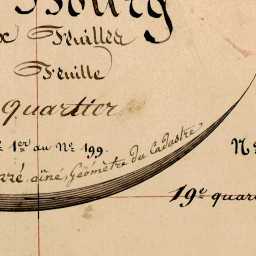 Bourg
Feuilles
Feuille
quartier
1er au No 199.
N
rré, aîné, Géomètre du Cadastre
19e quar